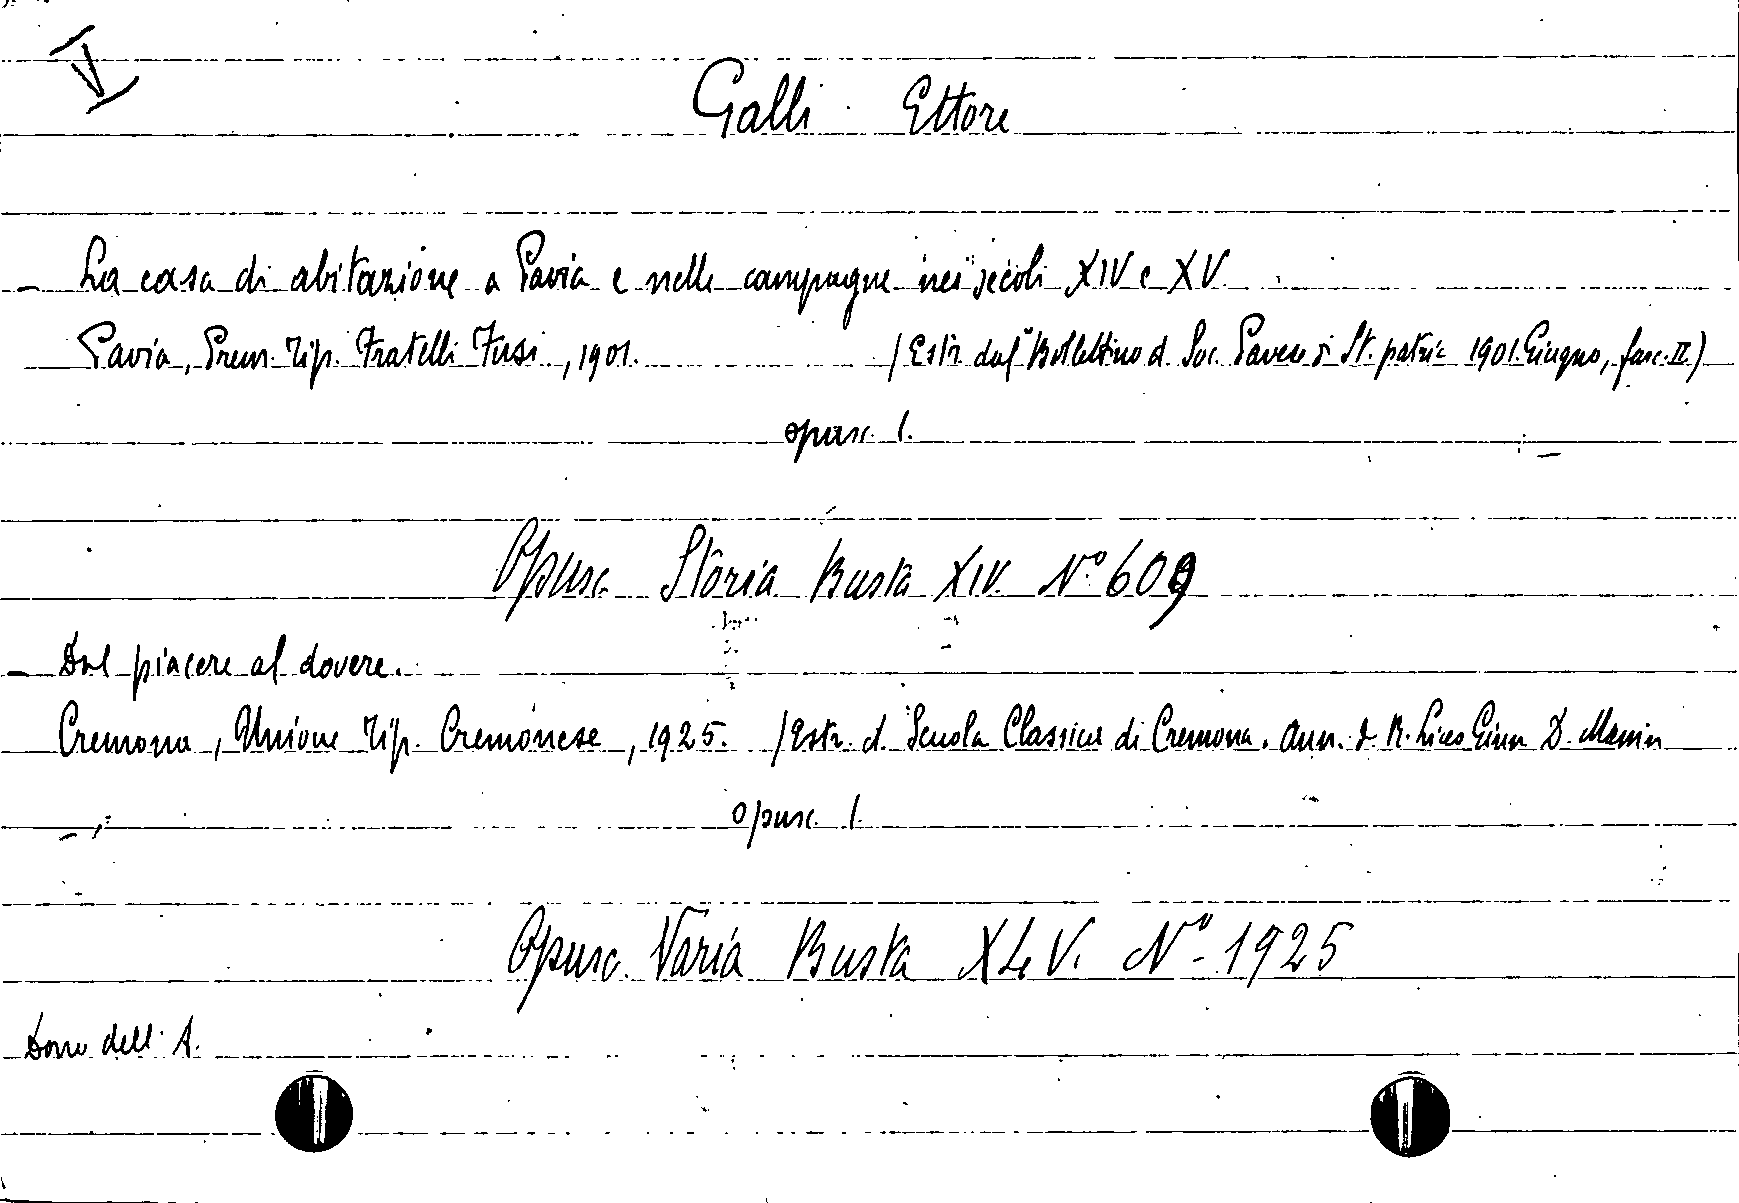 V
Galli Ettore
- La casa di abitazione a Pavia e nelle campagne nei secoli XIV e XV
Pavia, Prem. Tip. Fratelli Fusi, 1901. (Estr. dal Bollettino d. Soc. Pavese di St. patria 1901. Giugno, fasc. II)
opusc. 1.
Opusc. Storia Busta XIV. Nº 609
- Dal piacere al dovere.
Cremona, Unione Tip. Cremonese, 1925. (Estr. d. Scuola Classica di Cremona. Ann. d. R. Liceo Ginn D. Manin
opusc. 1.
Opusc. Varia Busta XLV. Nº 1925
Dono dell'A.